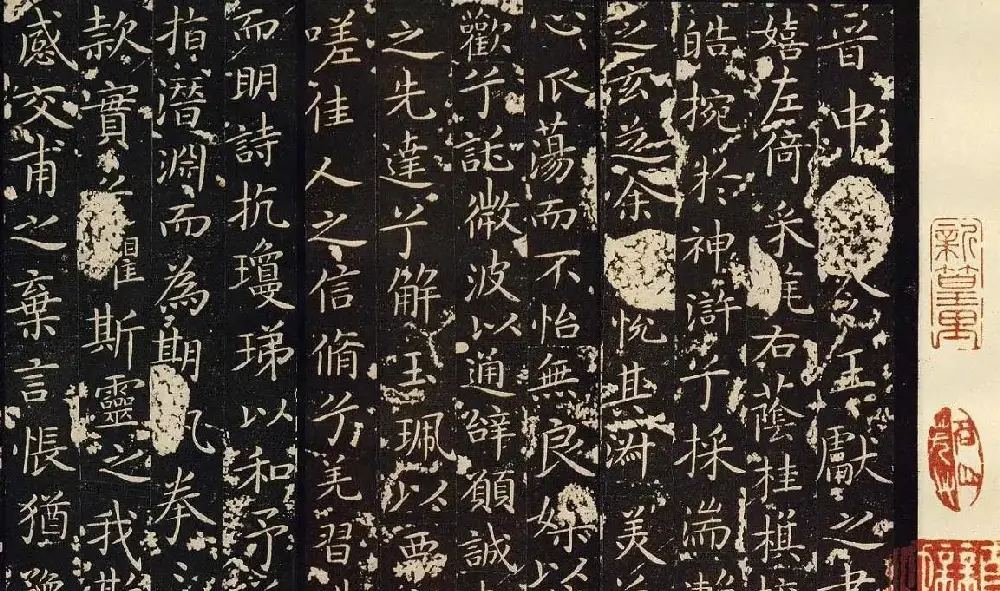 晋中令王獻之書
嬉左倚采旄右蔭桂棋
皓捥於神滸兮採湍瀨
之玄芝余悅其淋美
心爪蕩而不怡無良媒以
歡兮託微波以通辭願誠
之先達兮解玉珮以要
嗟佳人之信脩兮羌習
而明詩抗瓊珶以和予
指潛淵而為期執拳
款實懼斯靈之我
感交甫之棄言悵猶豫